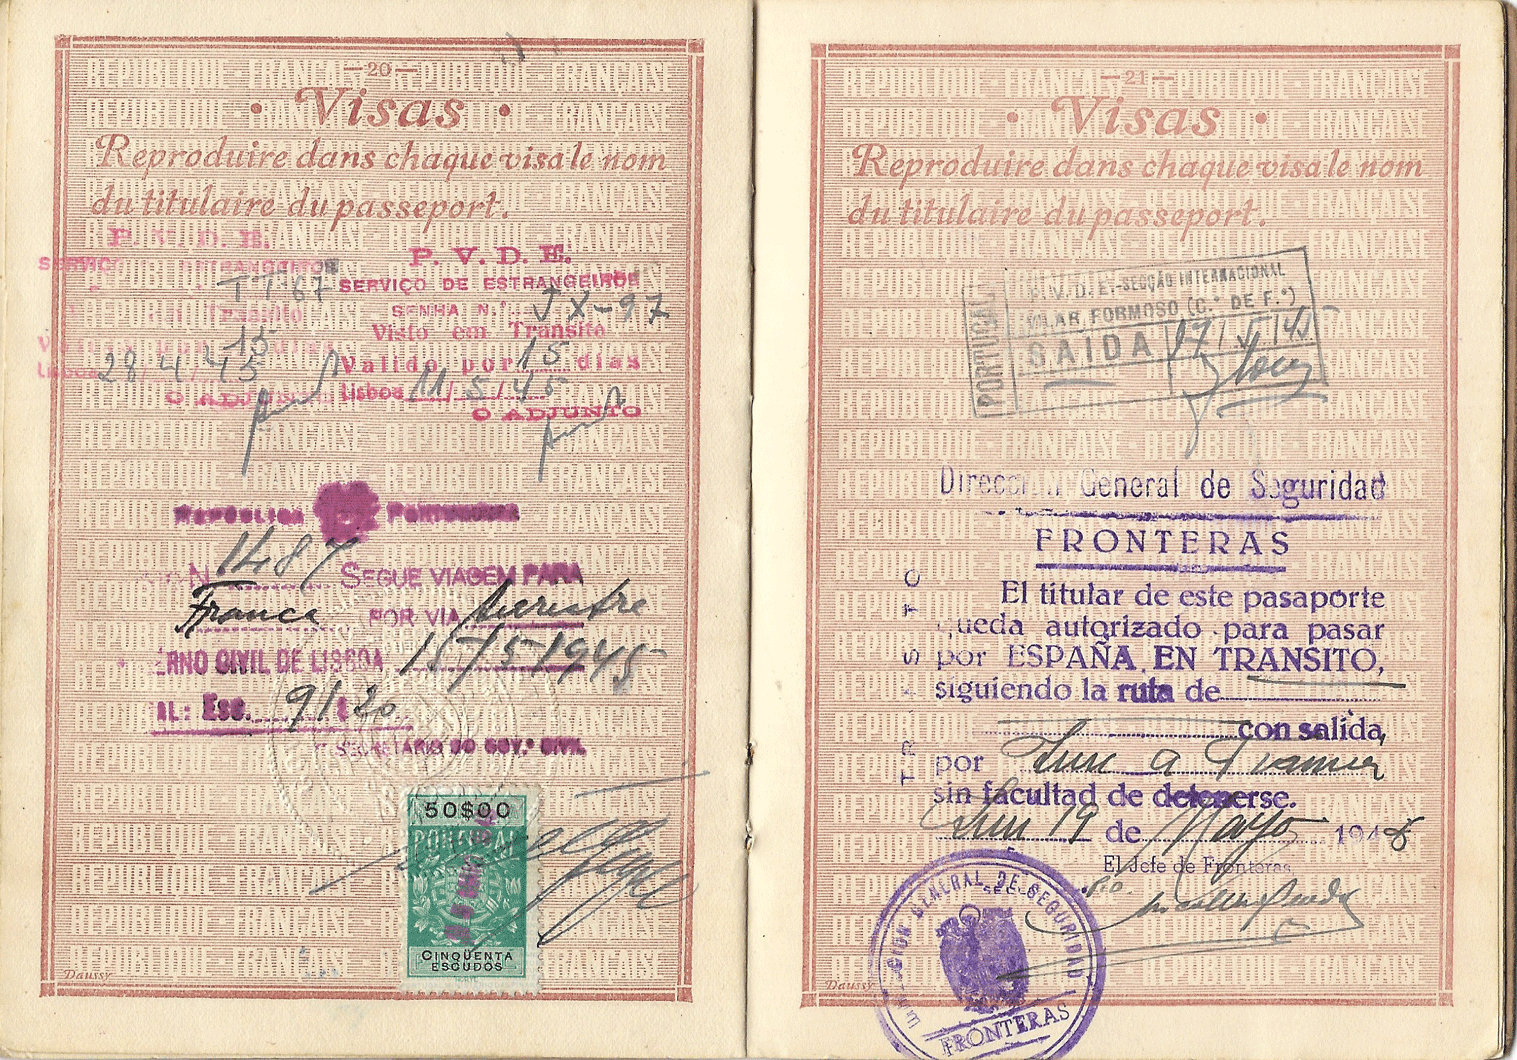 —20—
• Visas •
Reproduire dans chaque visa le nom
du titulaire du passeport.
P. V. D. E.
SERVIÇO ESTRANGEIROS
Transito
15
Lisboa 28/4/45
O ADJUNTO
P. V. D. E.
SERVIÇO DE ESTRANGEIROS
SENHA N.º JX-97
Visto em Transito
Valido por 15 dias
Lisboa 11/5/45
O ADJUNTO
REPUBLICA PORTUGUESA
N 1487 SEGUE VIAGEM PARA
France POR VIA terrestre
ERNO CIVIL DE LISBOA 15/5/1945
AL: Esc. 9/20
SECRETARIO DO GOV.º CIVIL
50$00
PORTUGAL
CINQUENTA
ESCUDOS
Daussy
—21—
• Visas •
Reproduire dans chaque visa le nom
du titulaire du passeport.
PORTUGAL
P. V. D. E.-SECÇÃO INTERNACIONAL
VILAR FORMOSO (C.º DE F.º)
SAIDA 17/5/45
Dirección General de Seguridad
FRONTERAS
TRASTO
El titular de este pasaporte
queda autorizado para pasar
por ESPAÑA EN TRANSITO,
siguiendo la ruta de
con salida,
por Irun
sin facultad de detenerse.
Irun 19 de Mayo 1945
El Jefe de Fronteras
DIRECCION GENERAL DE SEGURIDAD
FRONTERAS
Daussy